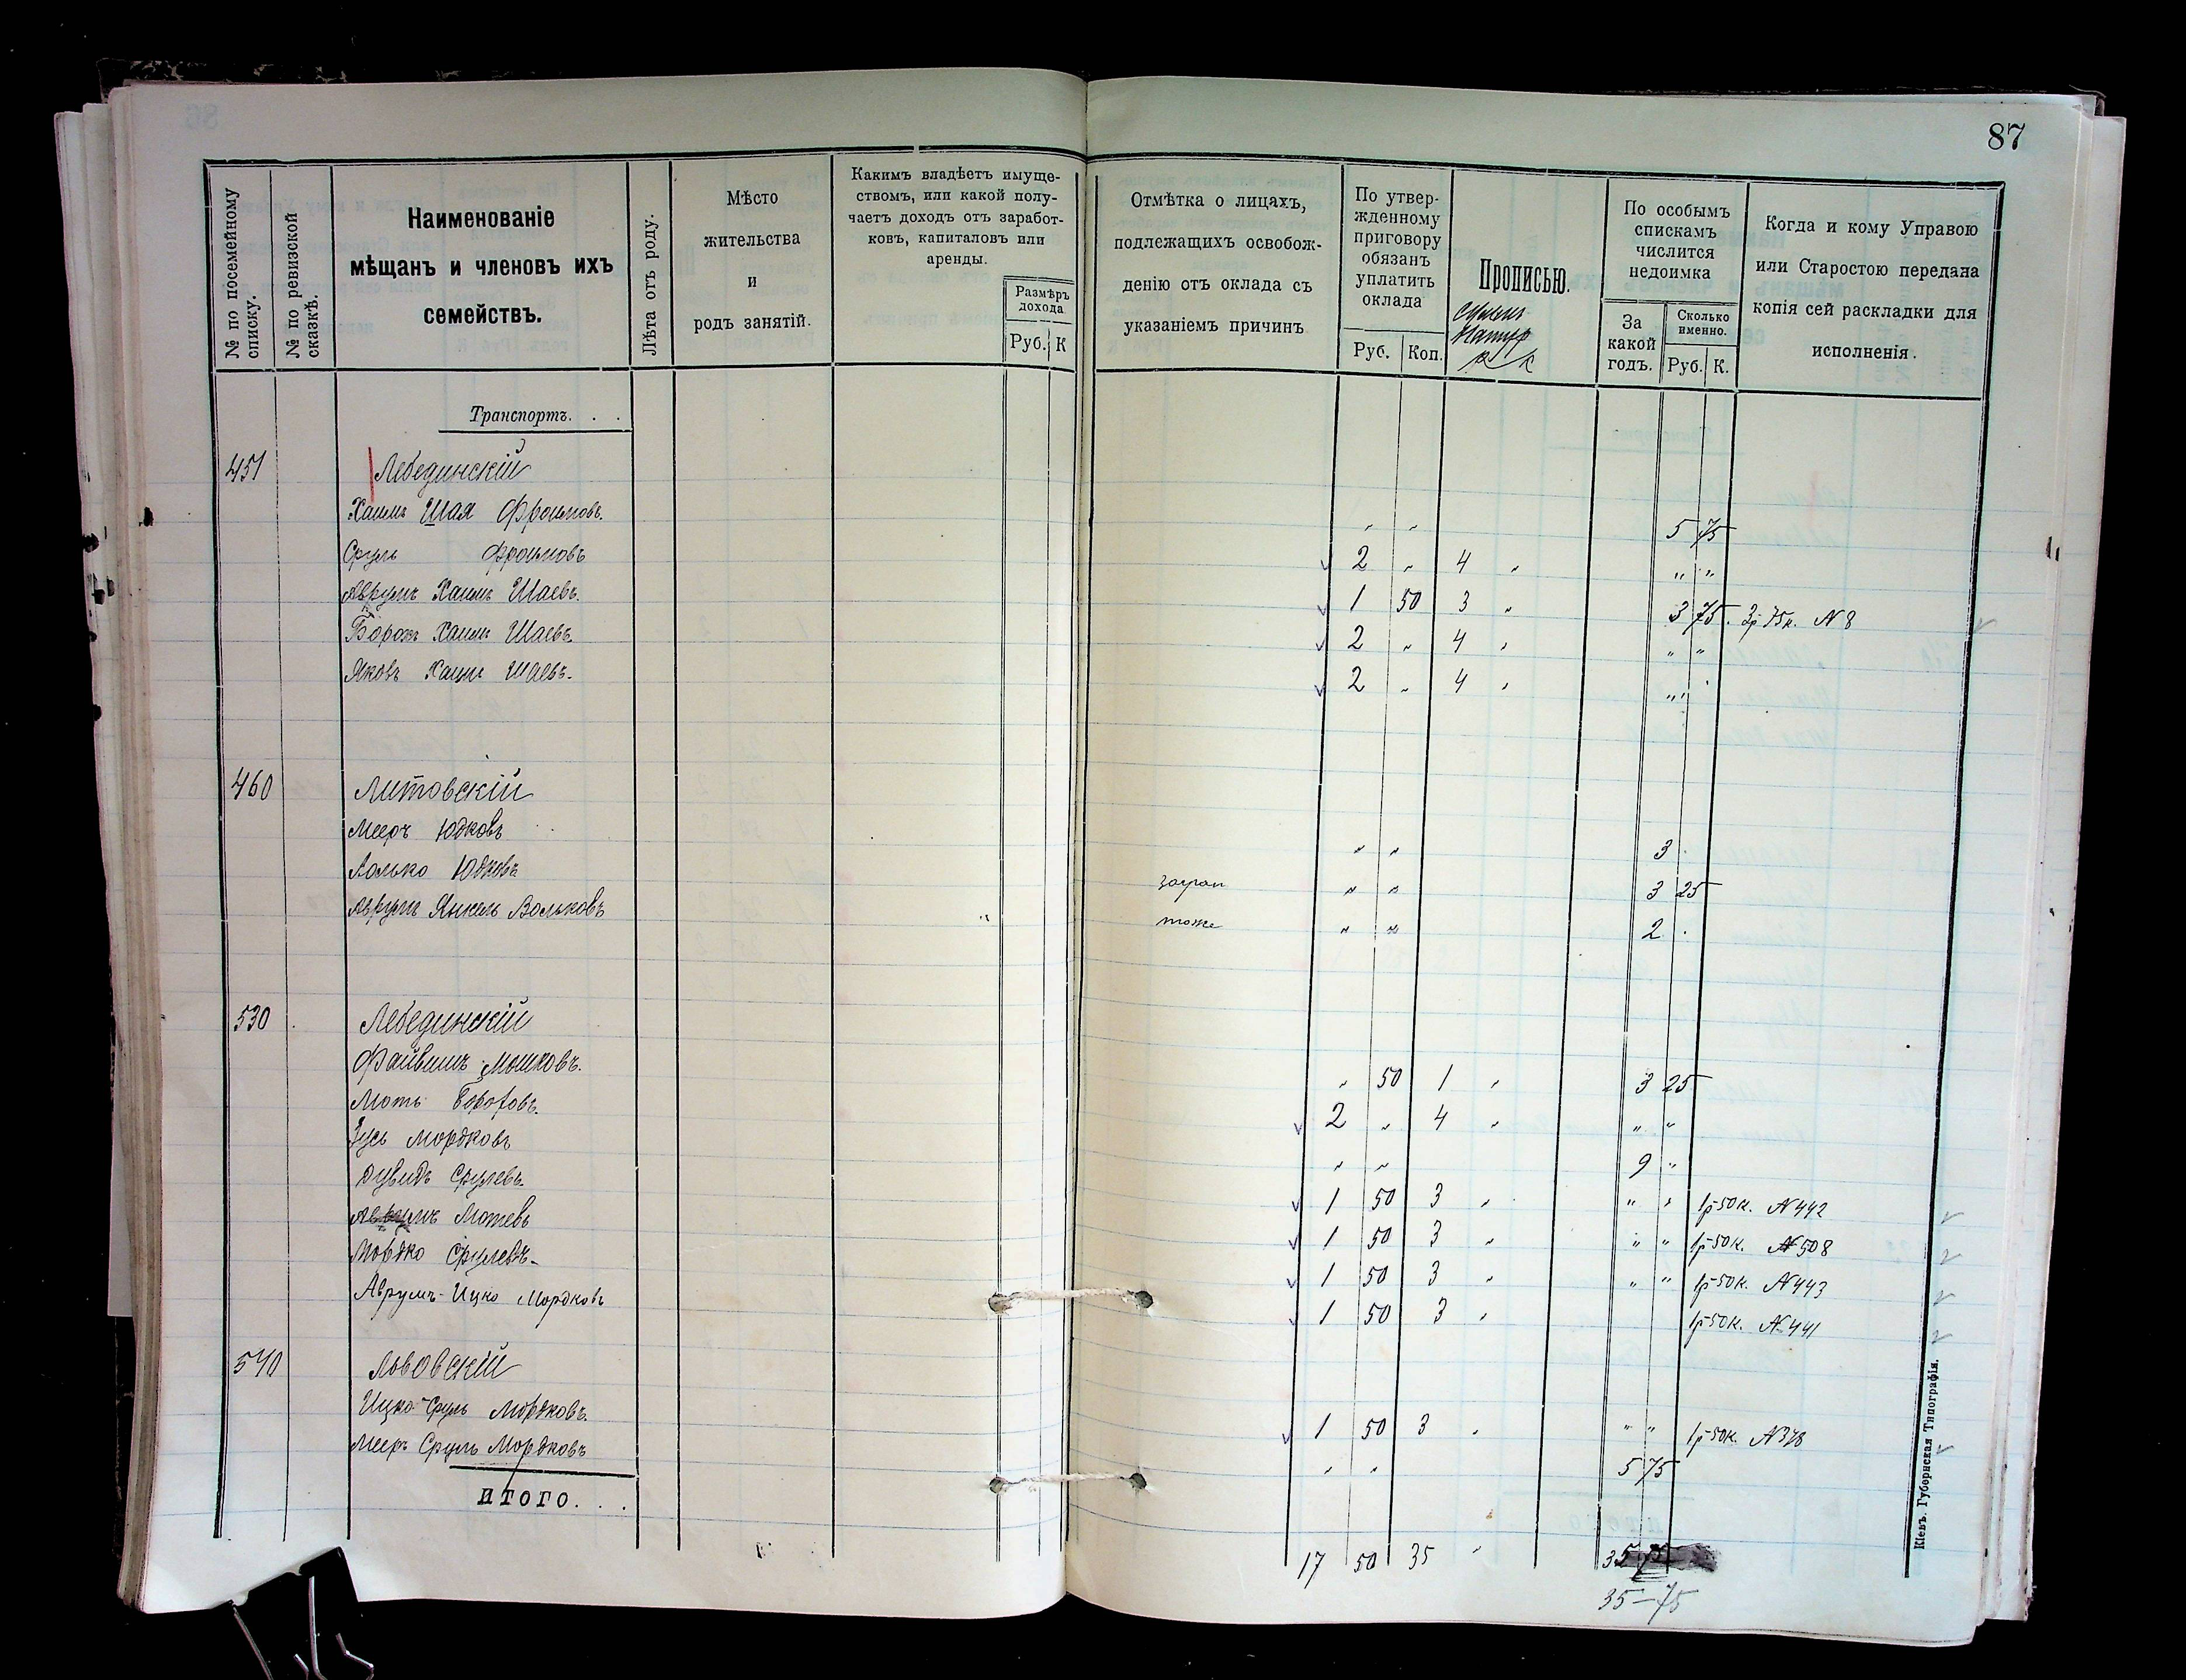 87
№ по посемейному списку.
№ по ревизской сказкѣ.
Наименованіе
мѣщанъ и членовъ ихъ
семействъ.
Лѣта отъ роду.
Мѣсто
жительства
и
родъ занятій.
Какимъ владѣетъ имуще-
ствомъ, или какой полу-
чаетъ доходъ отъ заработ-
ковъ, капиталовъ или
аренды.
Размѣръ
дохода
Руб. К
Отмѣтка о лицахъ,
подлежащихъ освобож-
денію отъ оклада съ
указаніемъ причинъ
По утвер-
жденному
приговору
обязанъ
уплатить
оклада
Руб. Коп.
Прописью.
р к
По особымъ
спискамъ
числится
недоимка
За
какой
годъ.
Сколько
именно.
Руб. К.
Когда и кому Управою
или Старостою передана
копія сей раскладки для
исполненія.
Транспортъ. . .
451 Лебединскій
Хаимъ Шая Фроимовъ. " " 5 75
Сруль Фроимовъ 2 " 4 " " "
Аврумъ Хаимъ Шаевъ. 1 50 3 " 3 75. 3р 75к. N 8
Борохъ Хаимъ Шаевъ. 2 " 4 " " "
Яковъ Хаимъ Шаевъ. 2 " 4 " " "
460 Литовскій
Мееръ Юдковъ " " 3 .
Юдковъ " " 3 25
Аврумъ Янкель Вольковъ тоже " " 2 .
530 Лебединскій
Файвишъ Мошковъ. " 50 1 " 3 25
Моть Бороховъ. 2 " 4 " " "
Зусь Мордковъ " " 9 "
Дувидъ Срулевъ. 1 50 3 " " " 1р 50к. N 442
Аврумъ Мотевъ 1 50 3 " " " 1р 50к. N 508
Мордко Срулевъ 1 50 3 " " " 1р 50к. N 443
Аврумъ-Ицко Мордковъ 1 50 3 " 1р 50к. N 441
540 Львовскій
Ицко-Сруль Мордковъ. 1 50 3 " " " 1р 50к. N 378
Мееръ Сруль Мордковъ " " 5 75
ИТОГО. . .
17 50 35 "
35-75
Кіевъ. Губернская Типографія.